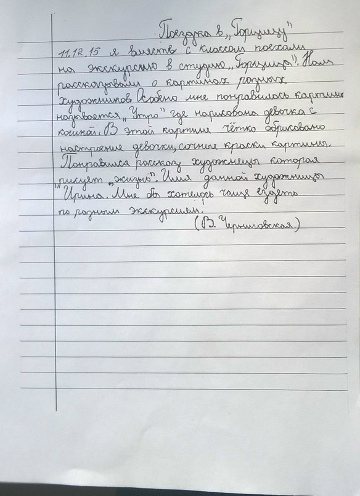 Поездка в „Горницу"
11.12.15 я вместе с классом поехали
на экскурсию в студию „Горница". Нам
рассказывали о картинах разных
художников. Особено мне понравилось картина
называется „Утро" где нарисована девочка с
кошкой. В этой картине чётко обрисовано
настроение девочки, сочные краски картины.
Понравился рассказ художницы которая
рисует „жизнь". Имя данной художницы
Ирина. Мне бы хотелось чаще ездить
по разным экскурсиям.
(В. Черниговская)